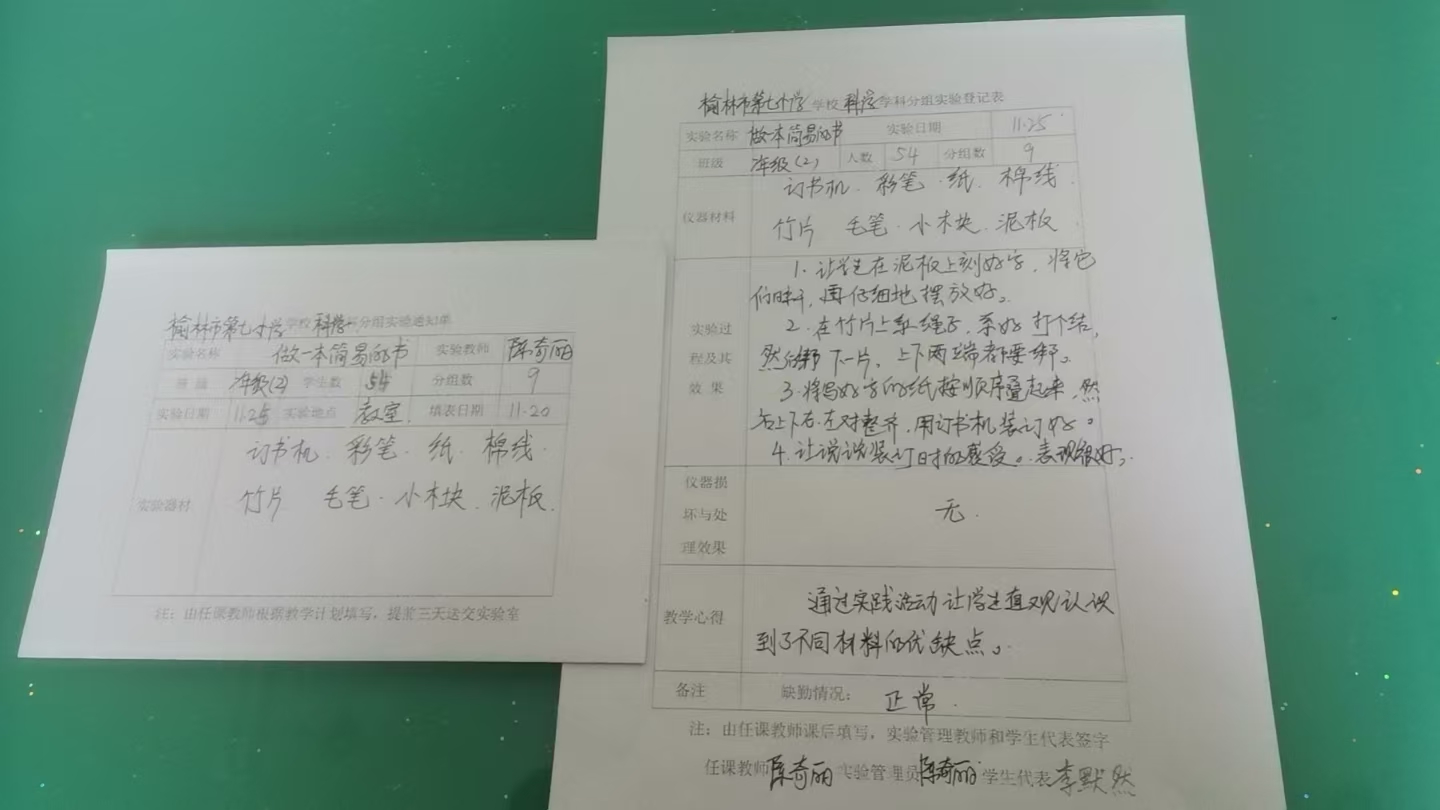 榆林市第七小学学校科学学科分组实验通知单
实验名称 做一本简易的书 实验教师 陈奇丽
班级 年级(2) 学生数 54 分组数 9
实验日期 11.25 实验地点 教室. 填表日期 11.20
实验器材
订书机. 彩笔. 纸. 棉线.
竹片 毛笔. 小木块. 泥板.
注：由任课教师根据教学计划填写，提前三天送交实验室
榆林市第七小学学校科学学科分组实验登记表
实验名称 做一本简易的书 实验日期 11.25
班级 年级(2) 人数 54 分组数 9
仪器材料
订书机. 彩笔. 纸. 棉线.
竹片 毛笔. 小木块. 泥板
实验过程及其效果
1. 让学生在泥板上刻好字，将它
们晾干，再仔细地摆放好。
2. 在竹片上系绳子，系好打个结，
然后绑下一片，上下两端都要绑。
3. 将写好字的纸按顺序叠起来，然
后上下右.左对整齐，用订书机装订好。
4. 让说说装订时的感受。表现很好。
仪器损坏与处理效果
无.
教学心得
通过实践活动让学生直观认识
到了不同材料的优缺点。
备注 缺勤情况： 正常.
注：由任课教师课后填写，实验管理教师和学生代表签字
任课教师陈奇丽 实验管理员陈奇丽 学生代表李默然